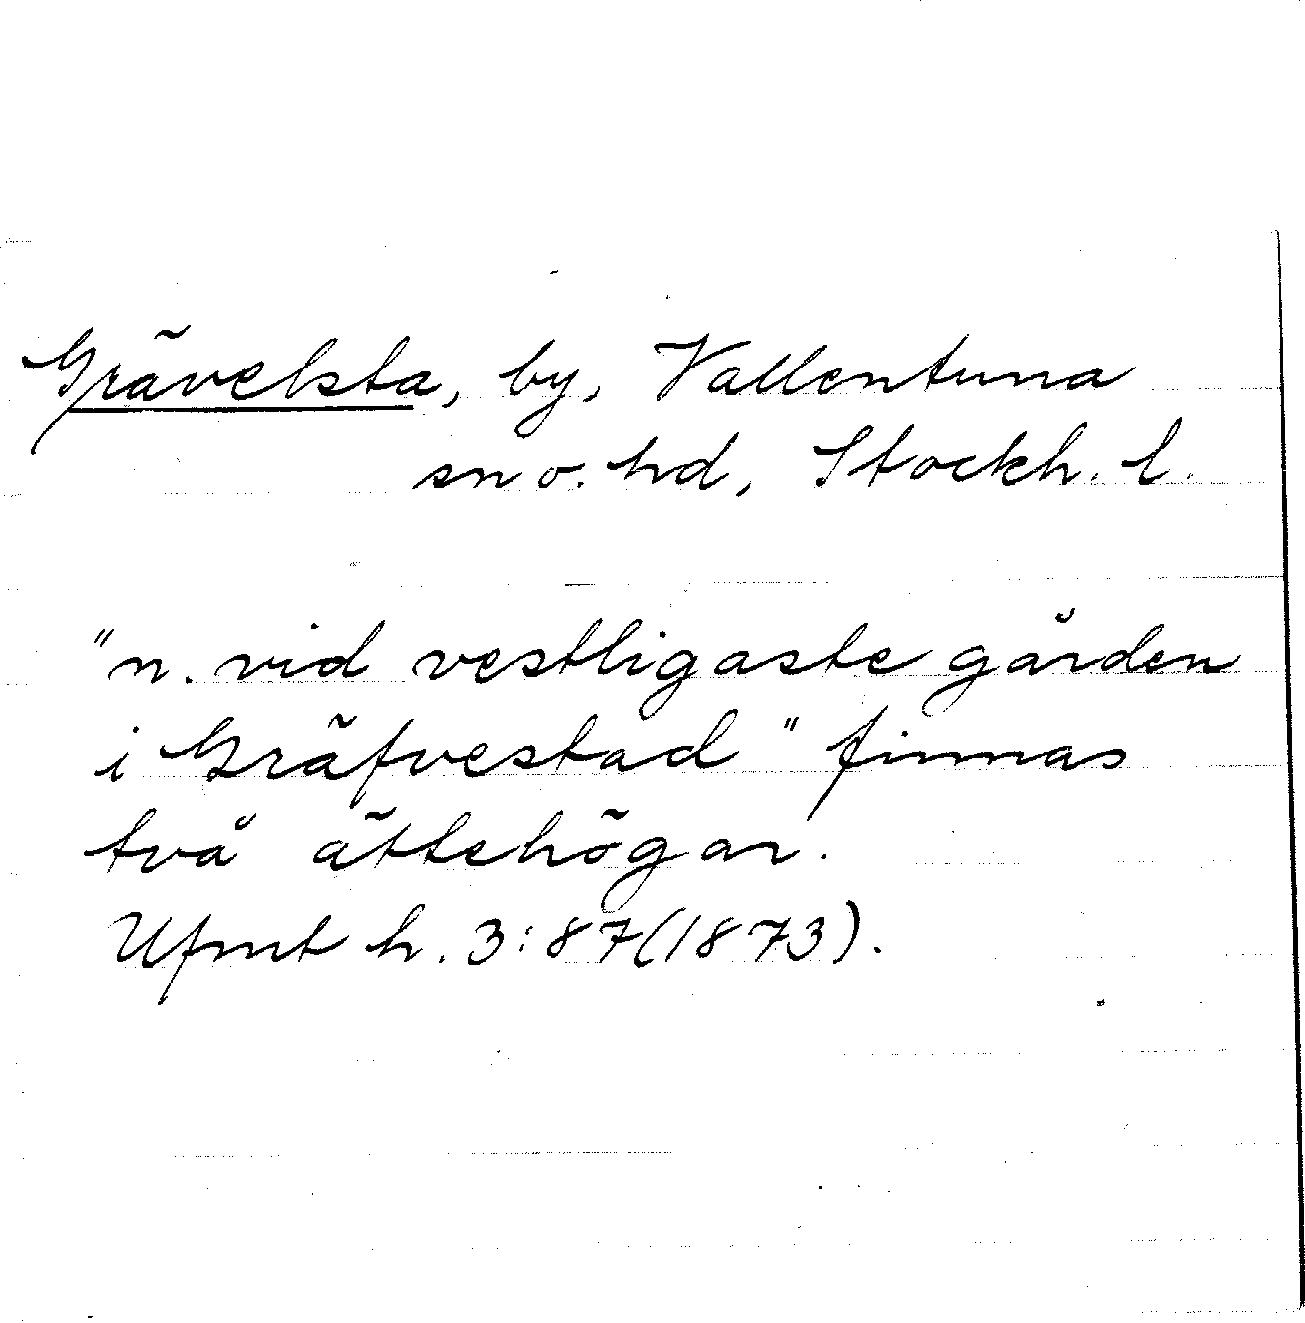 Grävelsta, by, Vallentuna
sn o. hd, Stockh. l.
"n. vid vestligaste gården
i Gräfvestad" finnas
två ättehögar.
Ufmt h. 3:87(1873).